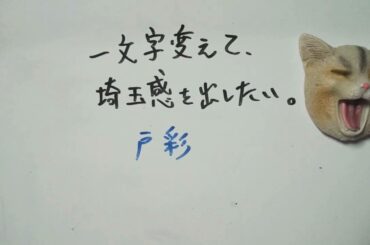 一文字変えて、
埼玉感を出したい。
戸彩